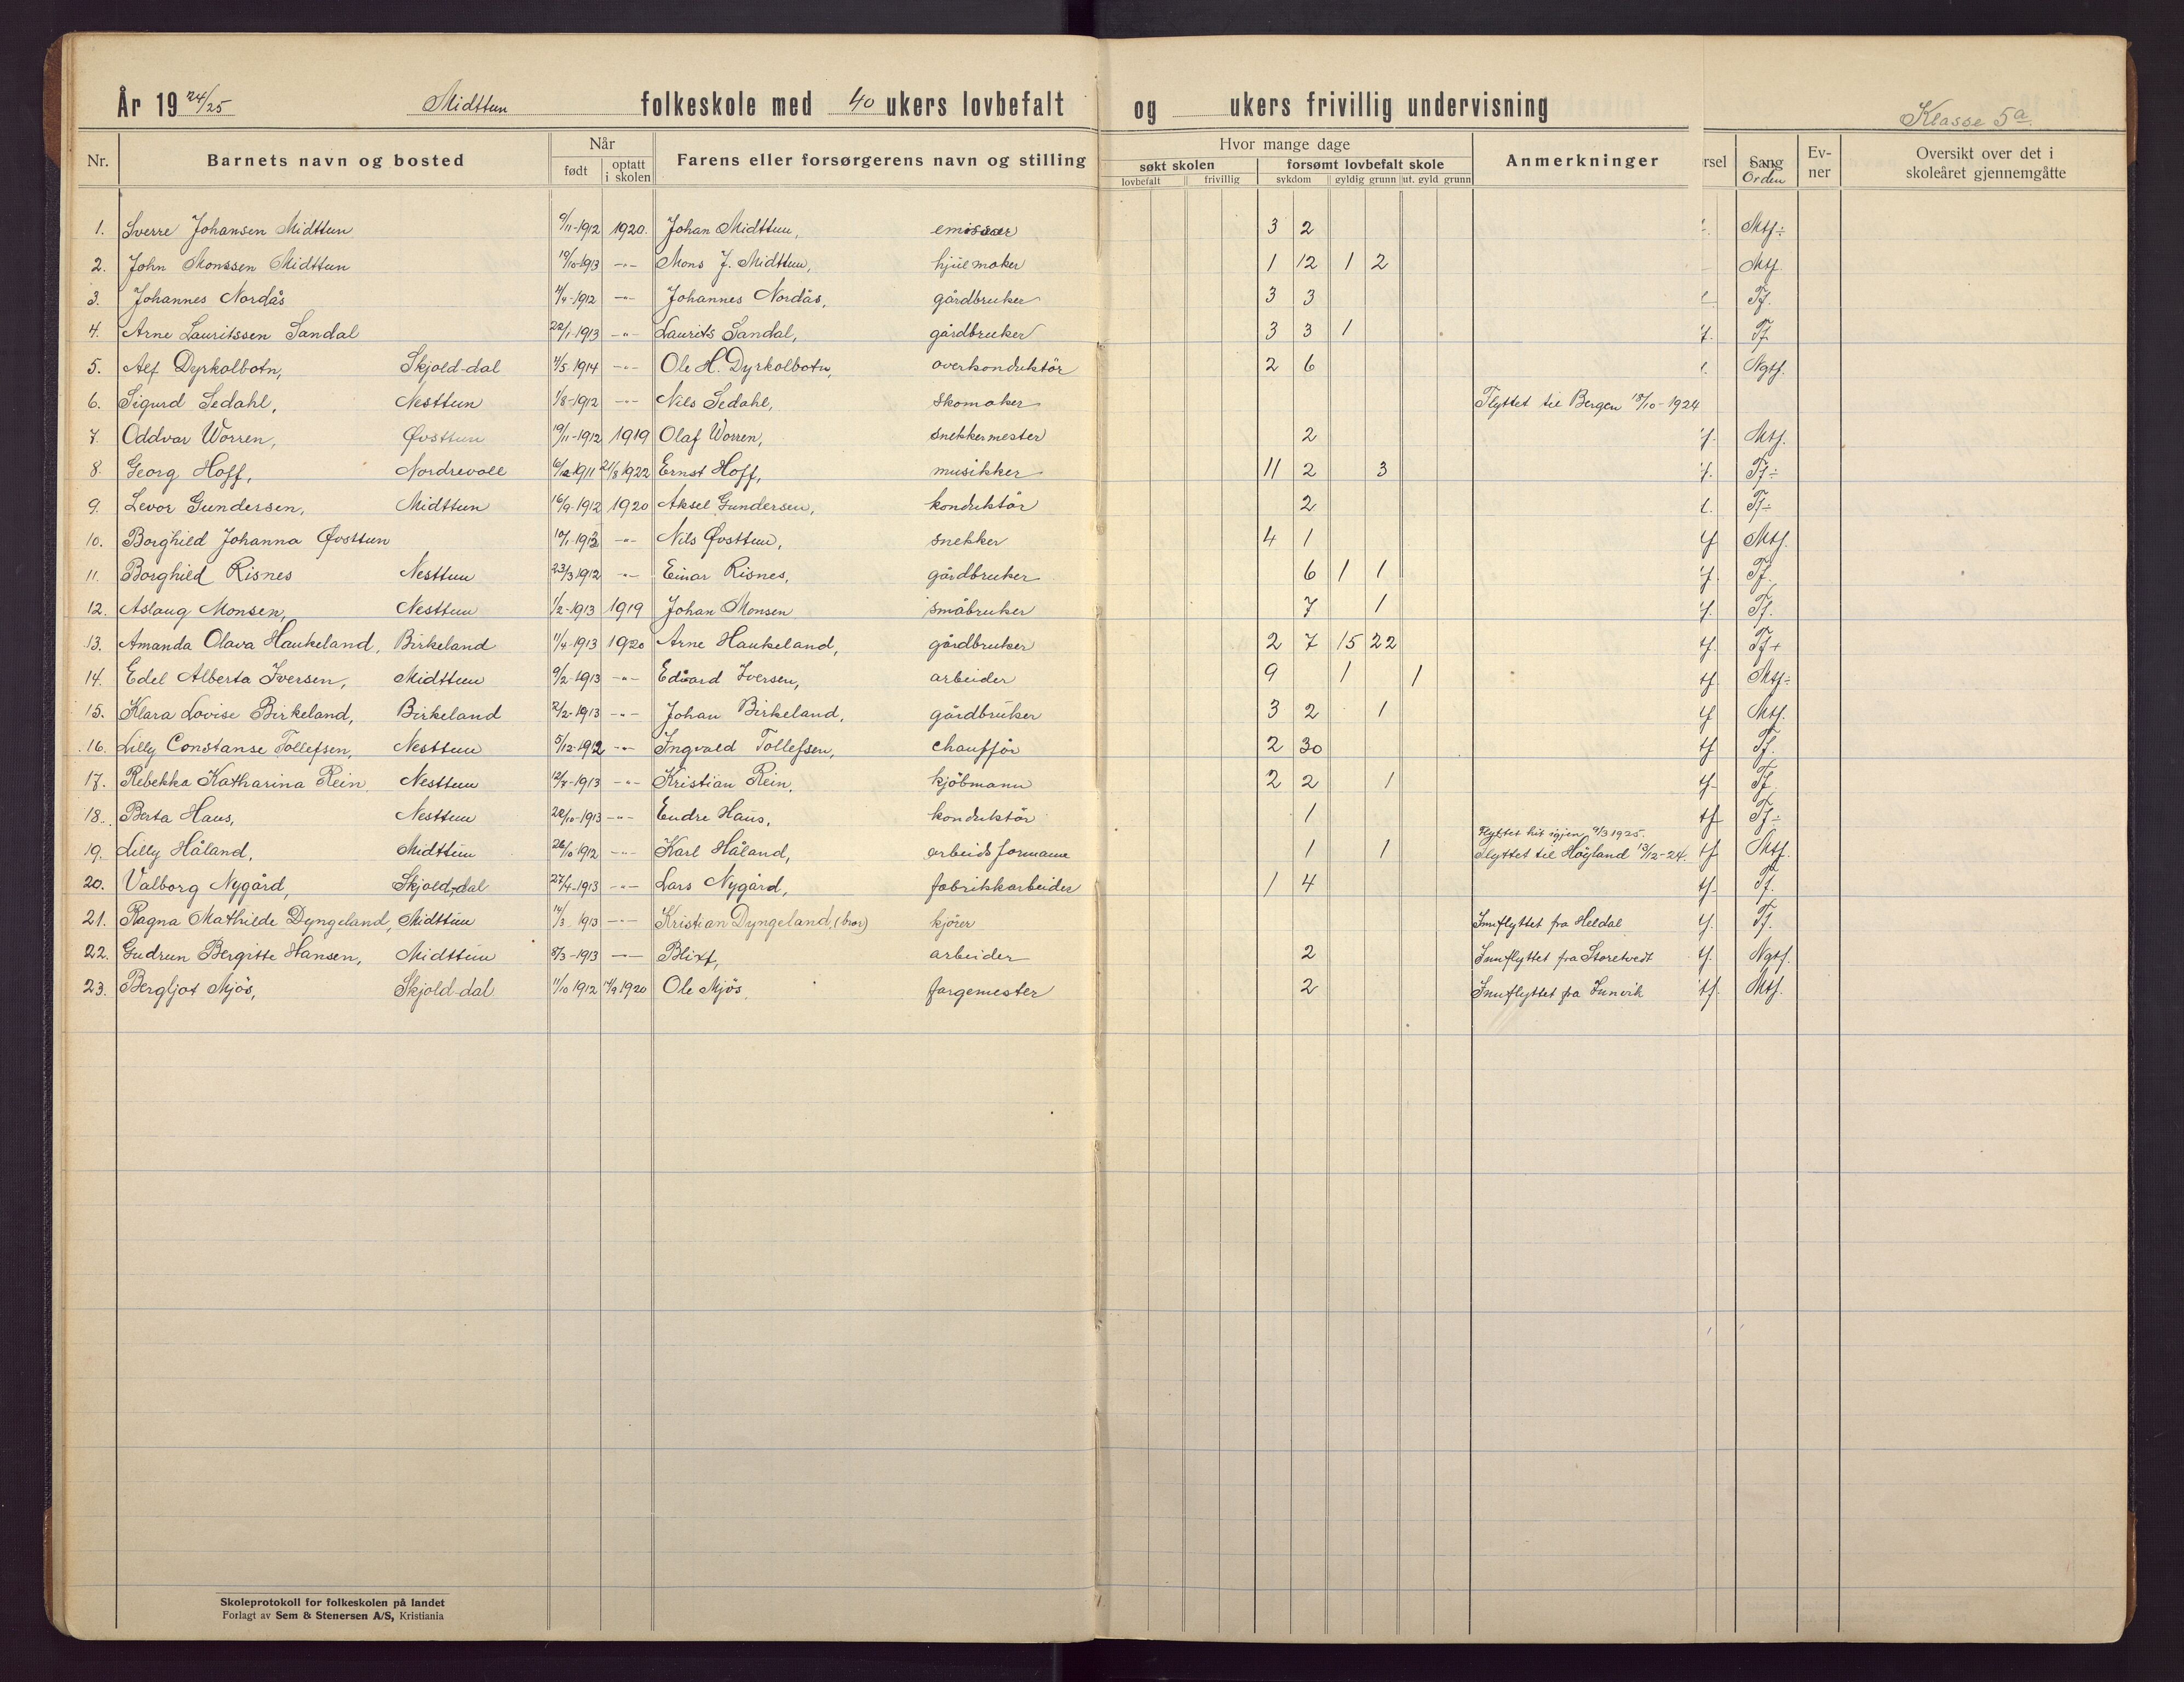 År 19 24/25 Midttun folkeskole med 40 ukers lovbefalt og ukers frivillig undervisning
Klasse 5a
Nr. Barnets navn og bosted Når født optatt i skolen Farens eller forsørgerens navn og stilling Hvor mange dage søkt skolen lovbefalt frivillig forsømt lovbefalt skole sykdom gyldig grunn ut. gyld grunn Anmerkninger rsel Sang Orden Ev- ner Oversikt over det i skoleåret gjennemgåtte
1. Sverre Johansen Midttun 9/11-1912 1920. Johan Midttun, emissær 3 2 Mtf÷
2. John Monssen Midttun 19/10-1913 -"- Mons J. Midttun, hjulmaker 1 12 1 2 Mtf
3. Johannes Nordås 4/4-1912 -"- Johannes Nordås, gårdbruker 3 3 Tf.
4. Arne Lauritssen Sandal 22/1-1913 -"- Laurits Sandal, gårdbruker 3 3 1 Tf
5. Alf Dyrkolbotn, Skjold-dal 4/5-1914 -"- Ole H. Dyrkolbotn, overkonduktör 2 6 Ngtf.
6. Sigurd Sedahl, Nesttun 1/8-1912 -"- Nils Sedahl, skomaker Flyttet til Bergen 18/10-1924
7. Oddvar Worren, Øvsttun 19/11-1912 1919 Olaf Worren, snekkermester 2 Mtf.
8. Georg Hoff, Nordrevoll 6/12-1911 21/8 1922 Ernst Hoff, musikker 11 2 3 Tf÷
9. Levor Gundersen, Midttun 16/9-1912 1920 Aksel Gundersen, konduktör 2 Tf÷
10. Borghild Johanna Øvsttun 10/1-1912 -"- Nils Øvsttun, snekker 4 1 Mtf.
11. Borghild Risnes Nesttun 23/3 1912 -"- Einar Risnes, gårdbruker 6 1 1 Tf.
12. Aslaug Monsen, Nesttun 1/2-1913 1919 Johan Monsen småbruker 7 1 Tf.
13. Amanda Olava Haukeland, Birkeland 11/4-1913 1920 Arne Haukeland, gårdbruker 2 7 15 22 Tf+
14. Edel Alberta Iversen, Midttun 9/2-1913 -"- Edvard Iversen, arbeider 9 1 1 Mtf÷
15. Klara Lovise Birkeland, Birkeland 2/2-1913 -"- Johan Birkeland, gårdbruker 3 2 1 Mtf.
16. Lilly Constanse Tollefsen, Nesttun 5/12-1912 -"- Ingvald Tollefsen, chaufför 2 30 Tf.
17. Rebekka Katharina Rein, Nesttun 12/4-1913 -"- Kristian Rein, kjöbmann 2 2 1 Tf.
18. Berta Haus, Nesttun 20/10-1913 -"- Endre Haus, konduktör 1 Tf÷
Flyttet hit igjen 9/3 1925.
19. Lilly Håland, Midttun 26/10-1912 -"- Karl Håland, arbeidsformann 1 1 Flyttet til Höyland 13/12-24. Mtf.
20. Valborg Nygård, Skjold-dal 27/4-1913 -"- Lars Nygård, fabrikkarbeider 1 4 Tf.
21. Ragna Mathilde Dyngeland, Midttun 14/3 1913 -"- Kristian Dyngeland, (bror) kjörer Innflyttet fra Heldal Tf.
22. Gudrun Bergitte Hansen, Midttun 8/3-1913 -"- Blixt, arbeider 2 Innflyttet fra Storetvedt Ngtf.
23. Bergljot Mjös, Skjold-dal 11/10 1912 14/9 1920 Ole Mjös fargemester 2 Innflyttet fra Innvik Mtf.
Skoleprotokoll for folkeskolen på landet
Forlagt av Sem & Stenersen A/S, Kristiania